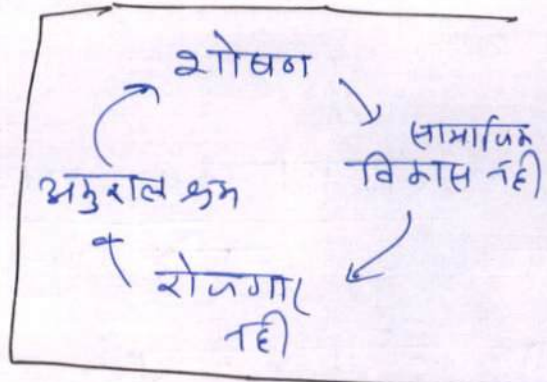 शोषण
सामाजिक
विकास नही
रोजगार
नही
अकुशल श्रम